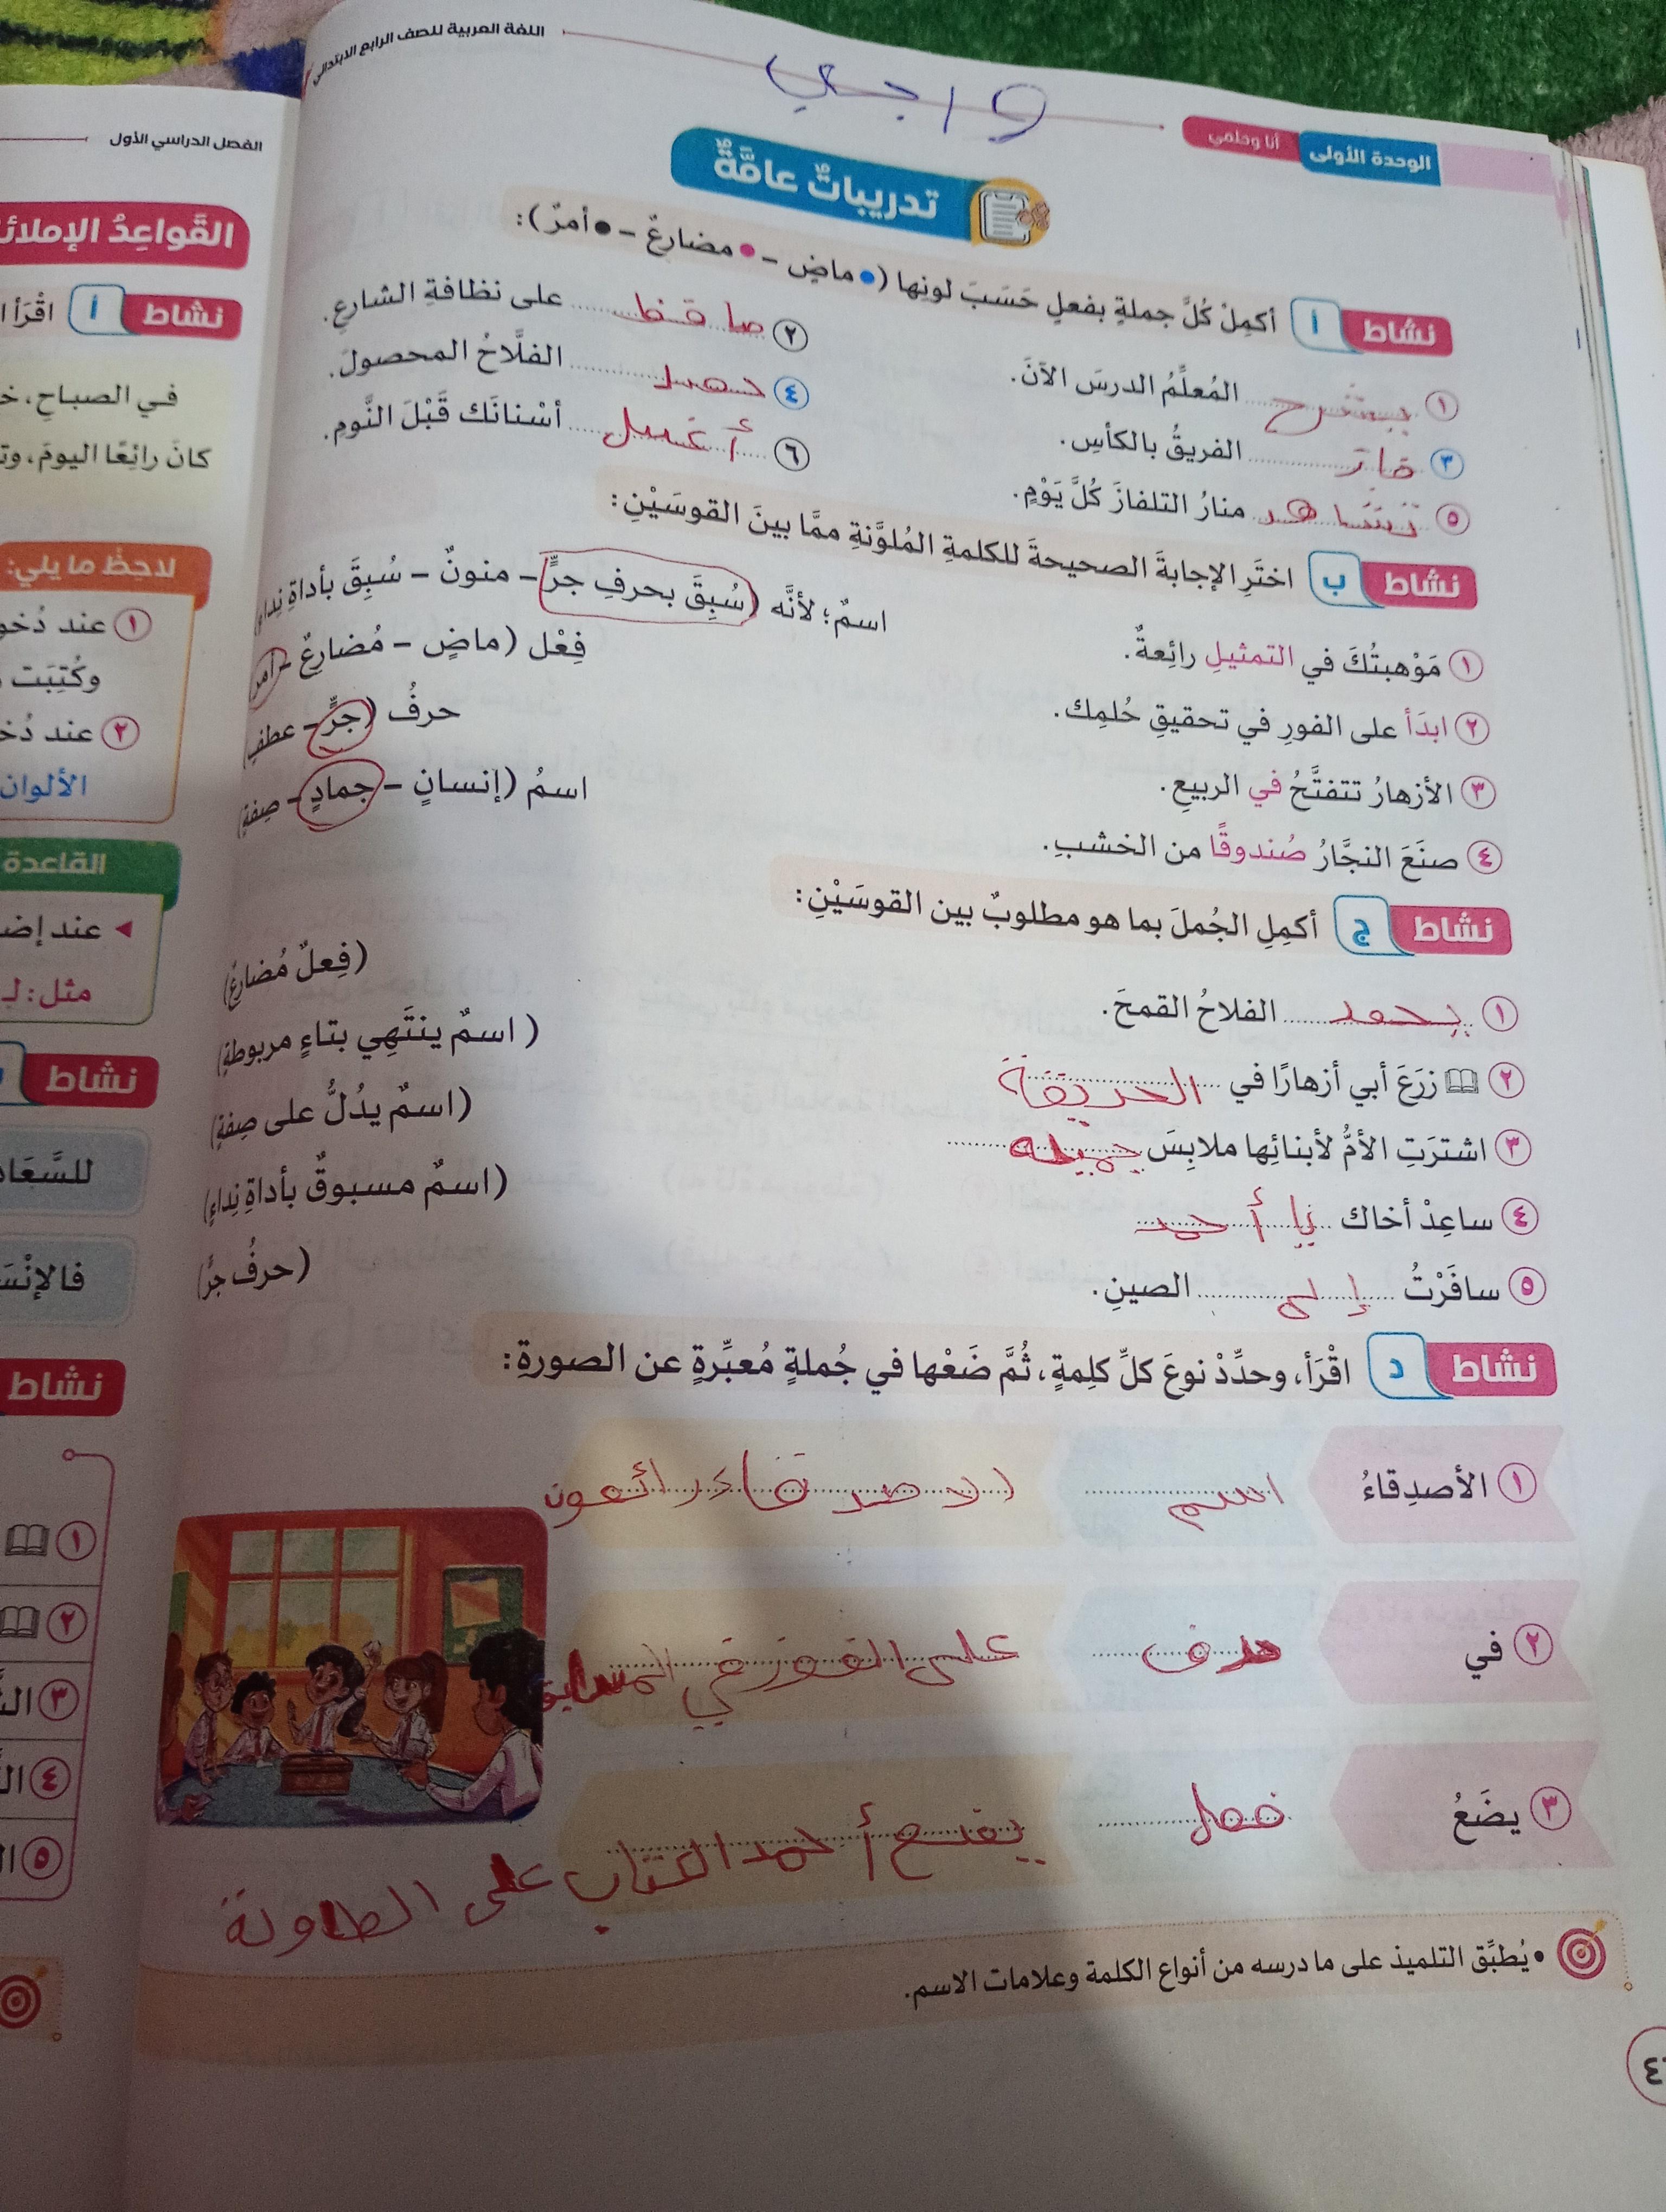 اللغة العربية للصف الرابع الابتدائي
واجبي
الوحدة الأولى أنا وحلمي
تدريباتٌ عامَّةٌ
نشاط أ أكمِلْ كُلَّ جملةٍ بفعلٍ حَسَبَ لونِها (● ماضٍ – ● مضارعٌ – ● أمرٌ):
١ يشرح المُعلِّمُ الدرسَ الآنَ.
٢ حافظ على نظافةِ الشارعِ.
٣ فاز الفريقُ بالكأسِ.
٤ حصد الفلَّاحُ المحصولَ.
٥ تشاهد منارُ التلفازَ كُلَّ يَوْمٍ.
٦ أغسل أسْنانَك قَبْلَ النَّومِ.
نشاط ب اختَرِ الإجابةَ الصحيحةَ للكلمةِ المُلوَّنةِ ممَّا بينَ القوسَيْنِ:
١ مَوْهبتُكَ في التمثيلِ رائِعةٌ. اسمٌ؛ لأنَّه (سُبِقَ بحرفِ جرٍّ – منونٌ – سُبِقَ بأداةِ نِداءٍ)
٢ ابدَأ على الفورِ في تحقيقِ حُلمِك. فِعْل (ماضٍ – مُضارعٌ – أمر)
٣ الأزهارُ تتفتَّحُ في الربيعِ. حرفُ (جرٍّ – عطفٍ)
٤ صنَعَ النجَّارُ صُندوقًا من الخشبِ. اسمُ (إنسانٍ – جمادٍ – صِفةٍ)
نشاط ج أكمِلِ الجُملَ بما هو مطلوبٌ بين القوسَيْنِ:
١ يحصد الفلاحُ القمحَ. (فِعلٌ مُضارعٌ)
٢ زرَعَ أبي أزهارًا في الحديقة (اسمٌ ينتَهِي بتاءٍ مربوطةٍ)
٣ اشترَتِ الأمُّ لأبنائِها ملابِسَ جميله (اسمٌ يدُلُّ على صِفةٍ)
٤ ساعِدْ أخاك يا أحمد (اسمٌ مسبوقٌ بأداةِ نِداءٍ)
٥ سافَرْتُ إلى الصينِ. (حرفُ جرٍّ)
نشاط د اقْرَأ، وحدِّدْ نوعَ كلِّ كلِمةٍ، ثُمَّ ضَعْها في جُملةٍ مُعبِّرةٍ عن الصورةِ:
١ الأصدِقاءُ اسم الاصدقاء رائعون
٢ في حرف على الفوز في المسابق
٣ يضَعُ فعل يضع أحمد الكتاب على الطاولة
• يُطبِّق التلميذ على ما درسه من أنواع الكلمة وعلامات الاسم.
الفصل الدراسي الأول
القَواعِدُ الإملائ
نشاط أ اقْرَأ ا
في الصباحِ، خ
كانَ رائِعًا اليومَ، وت
لاحِظْ ما يلي:
١ عند دُخو
وكُتِبَت
٢ عند دُخ
الألوان
القاعدة
عند إضـ
مثل: لـ
نشاط
للسَّعَاد
فالإنْسَ
نشاط
١
٢
٣
٤
٥